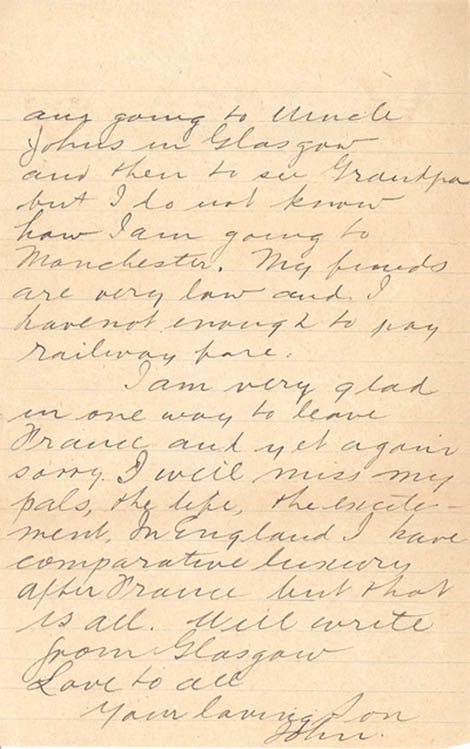 am going to Uncle
Johns in Glasgow
and then to see Grandpa
but I do not know
how I am going to
Manchester. My funds
are very low and I
have not enough to pay
railway fare.
I am very glad
in one way to leave
France and yet again
sorry. I will miss my
pals, the life, the excite-
ment. In England I have
comparative luxury
after France but that
is all. Will write
from Glasgow
Love to all
Your loving Son
John.